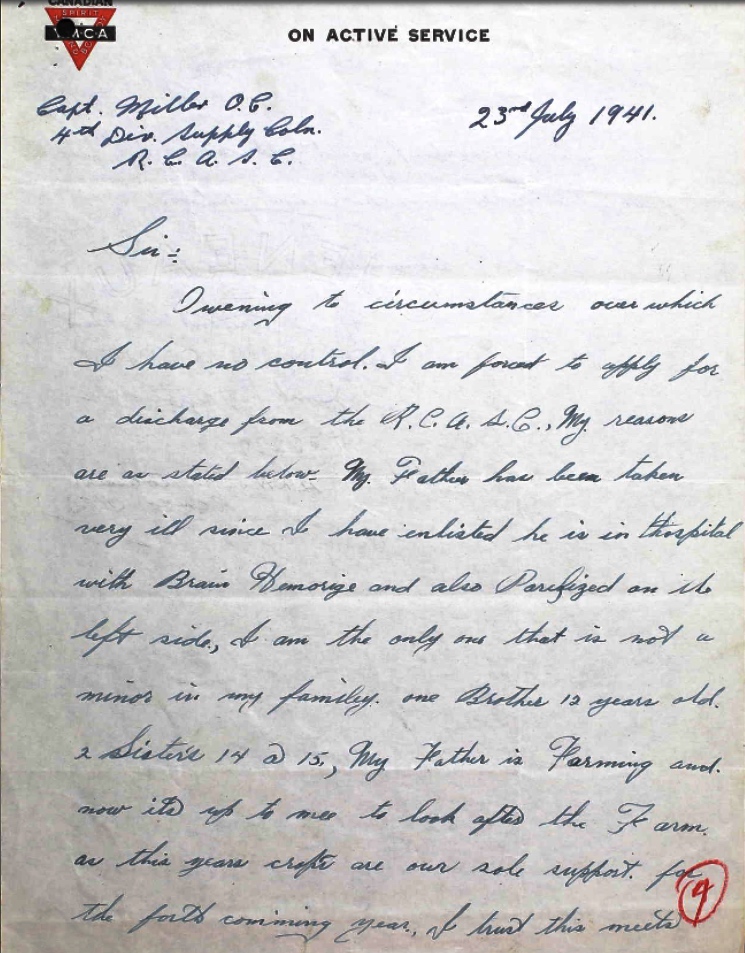 CANADIAN
SPIRIT
YMCA
ON ACTIVE SERVICE
Capt. Miller O.C.
23rd July 1941.
4th Div. Supply Coln.
R.C.A.S.C.
Sir:-
Owening to circumstances over which
I have no control. I am forced to apply for
a discharge from the R.C.A.S.C., My reasons
are as stated below. My Father has been taken
very ill since I have enlisted he is in Hospital
with Brain Hemorige and also Paralized on the
left side, I am the only one that is not a
minor in my familey. one Brother 12 years old.
2 Sister's 14 @ 15, My Father is Farming and.
now its up to mee to look after the Farm.
as this years crops are our sole support. for
the forth comming year, I trust this meets
4